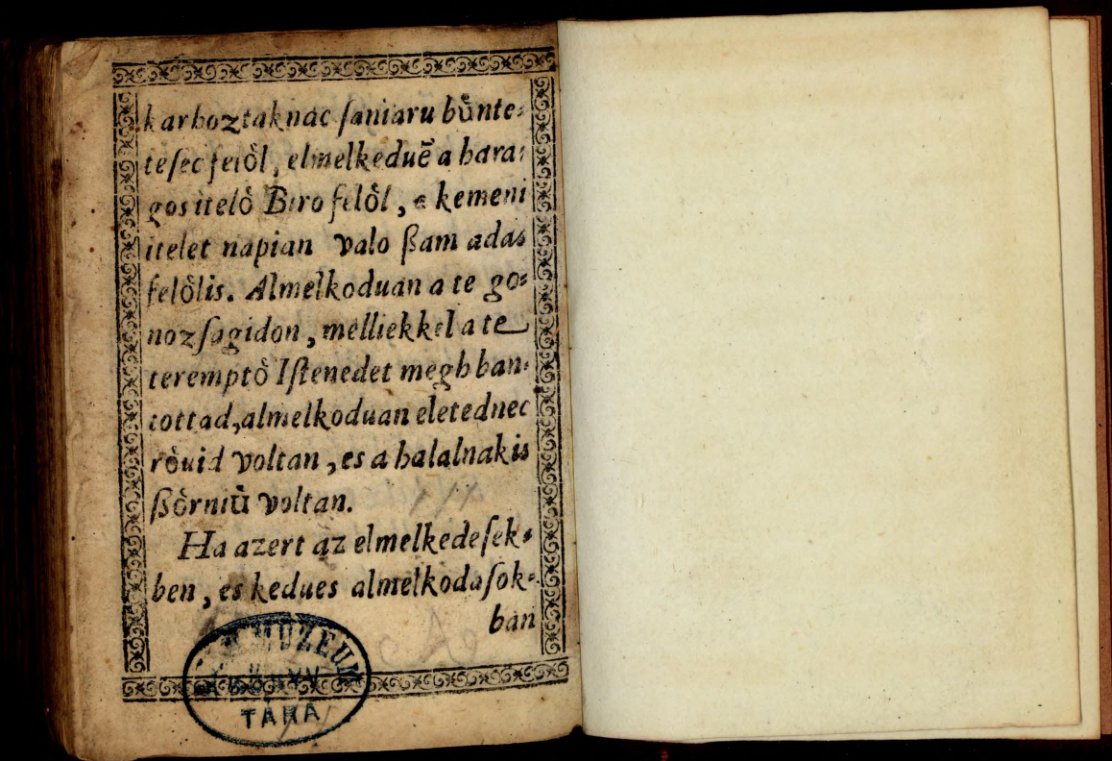 karhoztaknac ſaniaru bu̎nte⸗
teſec felo̍l, elmelkeduē a hara⸗
gos itelo̍ Biro felo̍l, a kemeni
itelet napian valo ßam adas
felo̍lis. Almelkoduan a te go⸗
nozſagidon, melliekkel a te
terempto̍ Iſtenedet megh ban⸗
tottad, almelkoduan eletednec
ro̍uid voltan, es a halalnak is
ßo̍rniu̎ voltan.
Ha azert az elmelkedeſek⸗
ben, es kedues almelkodaſok⸗
ban
MUZEUM
KÖNYV
TÁRA